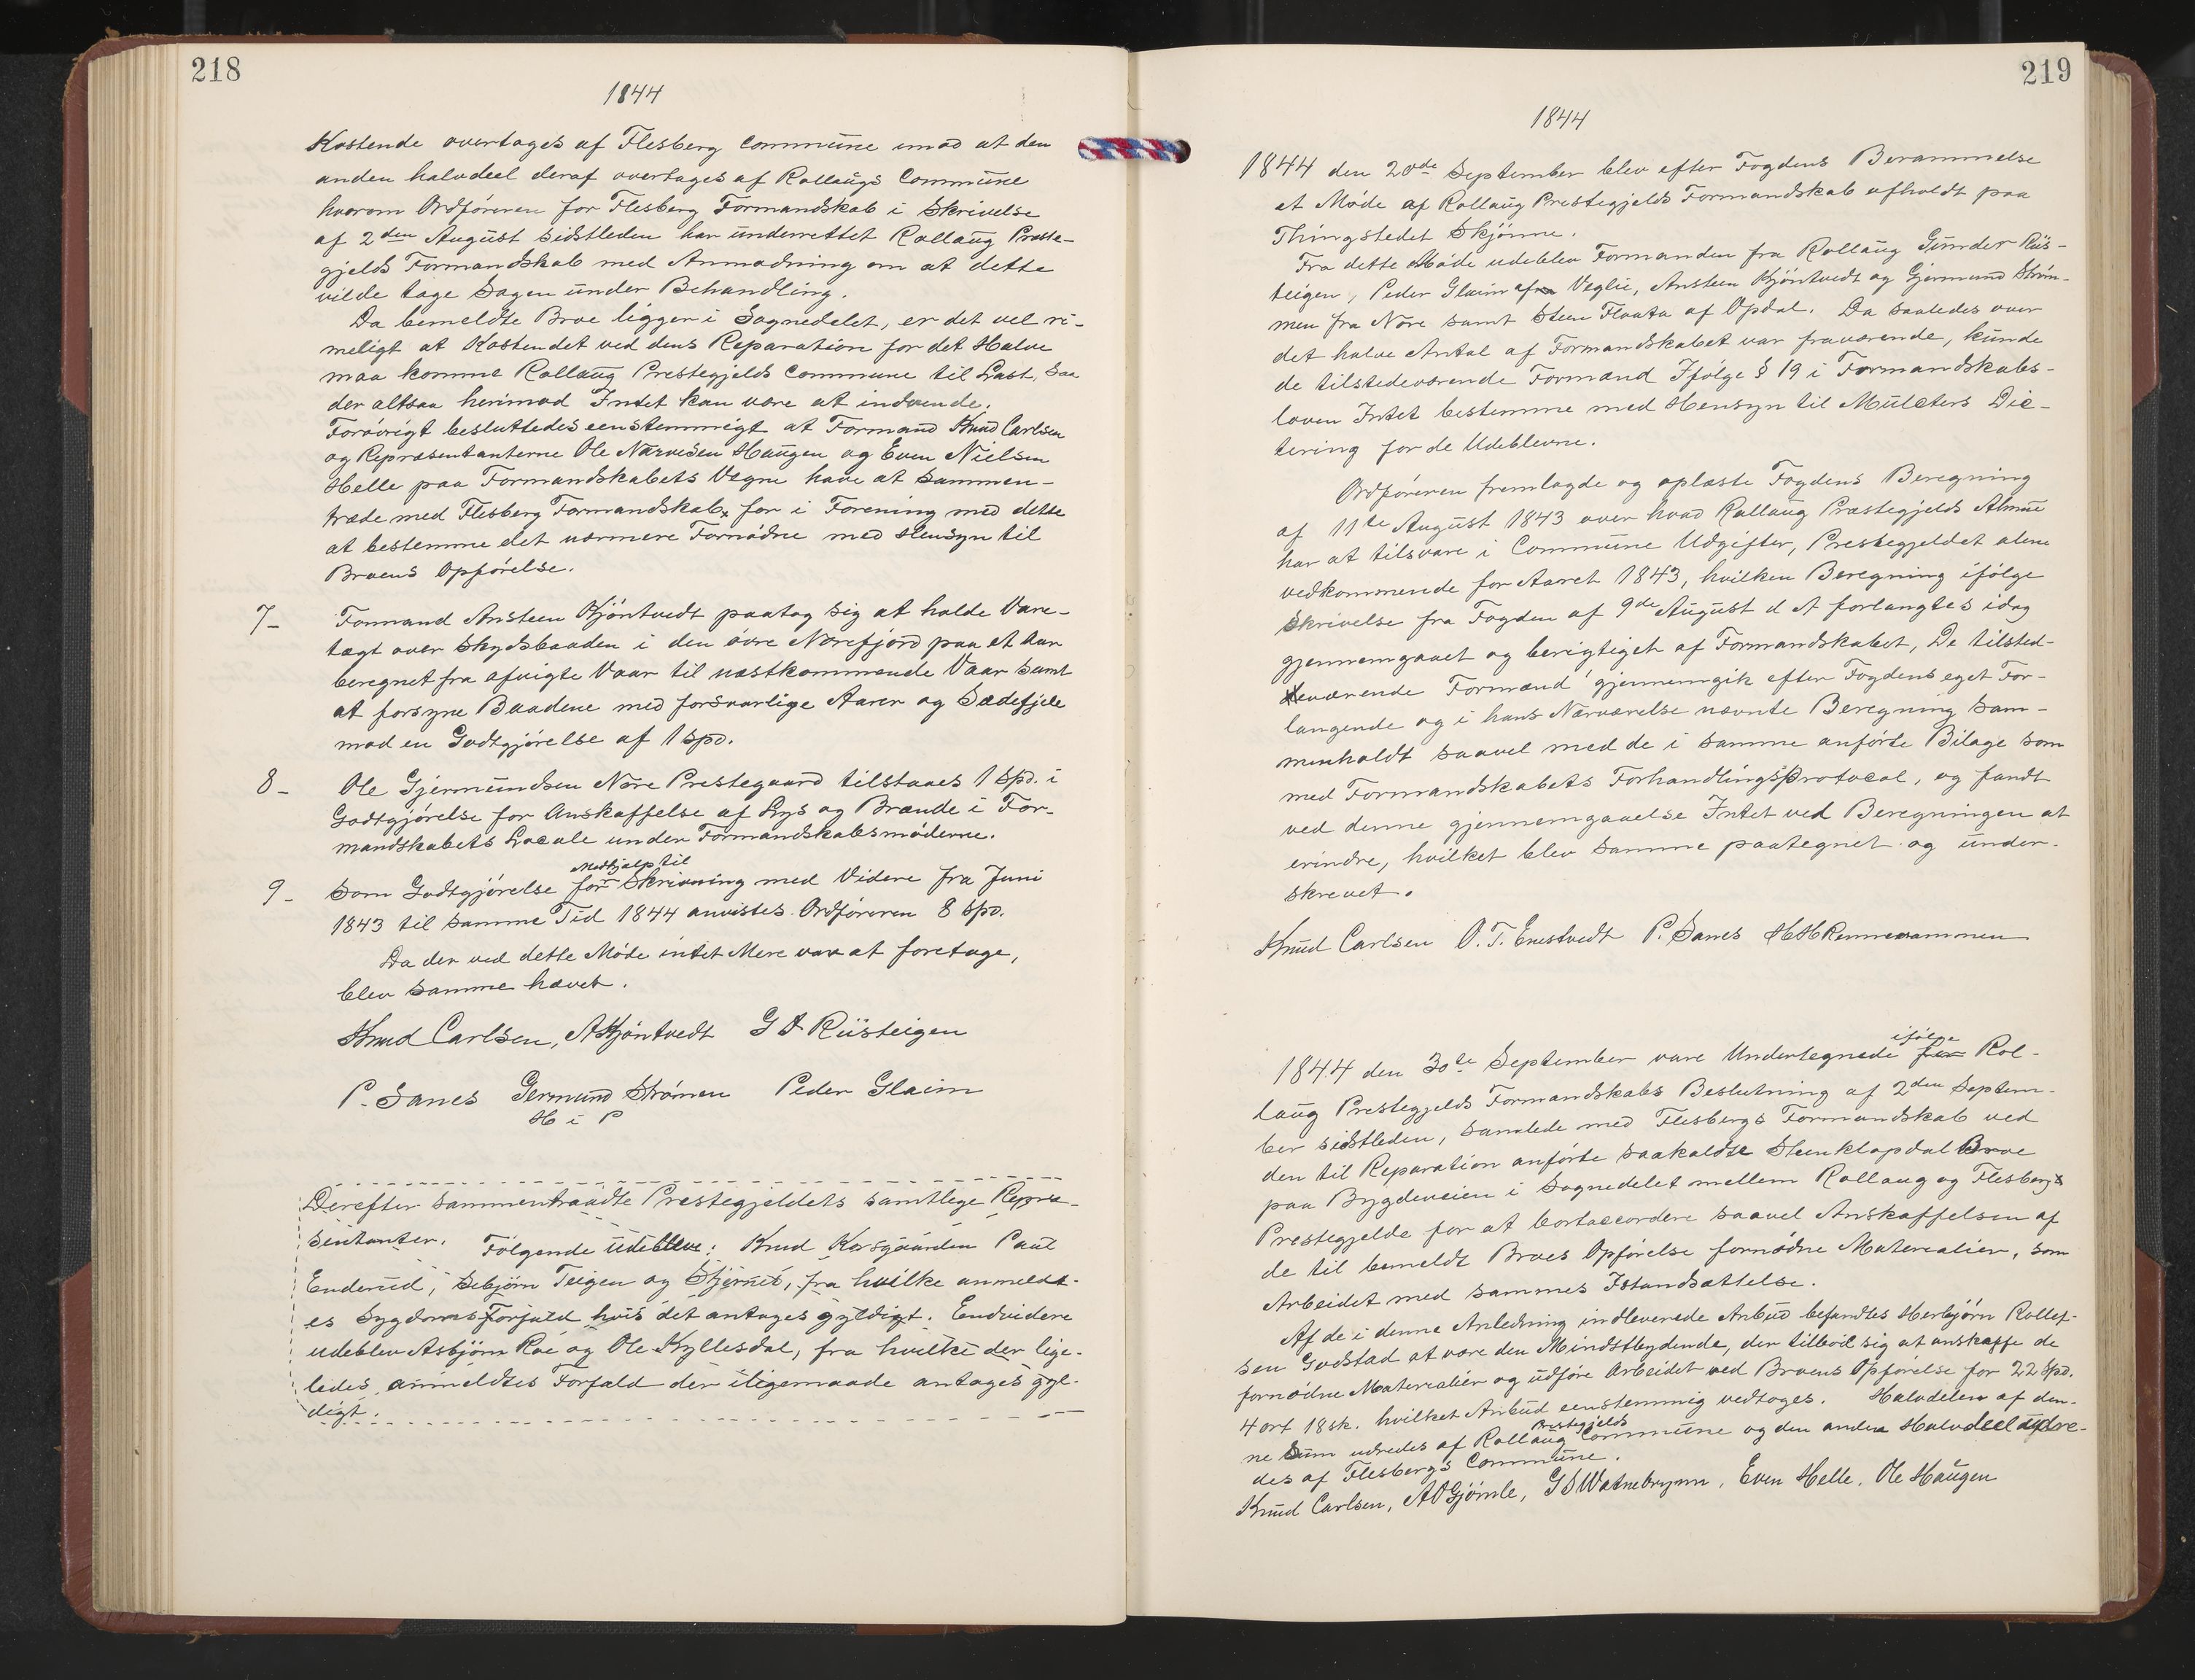 218
1844
Kostende overtages af Flesberg Commune imod at den
anden halvdeel deraf overtages af Rollaugs Commune
hvorom Ordføreren for Flesberg Formandskab i Skrivelse
af 2den August sidstleden har underrettet Rollaug Præste-
gjelds Formandskab med Anmodning om at dette
vilde tage Sagen under Behandling.
Da bemeldte Broe ligger i Sognedelet, er det vel ri-
meligt at Kostendet ved dens Reparation for det Halve
maa komme Rollaug Prestegjelds Commune til Last, saa
der altsaa herimod Intet kan være at indvende.
Forøvrigt besluttedes eenstemmigt at Formand Knud Carlsen
og Repræsentanterne Ole Narvesen Haugen og Even Nielsen
Helle paa Formandskabets Vegne have at sammen-
træde med Flesberg Formandskab, for i Forening med dette
at bestemme det nærmere Fornødne med Hensyn til
Broens Opførelse.
7- Formand Ansteen Kjøntvedt paatog sig at holde Vare-
tægt over Skydsbaaden i den øvre Norefjord paa et Aar
beregnet fra afvigte Vaar til næstkommende Vaar samt
at forsyne Baadene med forsvarlige Aarer og Sædefjele
mod en Godtgjørelse af 1 Spd.
8- Ole Gjermundsen Nore Prestegaard tilstaaes 1 Spd. i
Godtgjørelse for Anskaffelse af Lys og Brænde i For-
mandskabets Locale under Formandskabsmøderne.
Medhjælp til
9- Som Godtgjørelse for Skrivning med Videre fra Juni
1843 til samme Tid 1844 anvistes Ordføreren 8 Spd.
Da der ved dette Møde intet Mere var at foretage,
blev samme hævet.
Knud Carlsen, AKjøntvedt G A Riisteigen
P. Sanes Germund Strømen Peder Glaim
H i P
Derefter sammentraadte Prestegjeldets samtlege Repræ-
sentanter. Følgende udebleve: Knud Korsgaarden Paul
Enderud, Sebjørn Teigen og Stjernes, fra hvilke anmeldt-
es Sygdoms Forfald hvis det antages gyldigt. Endvidere
udeblev Asbjørn Roe og Ole Kyllesdal, fra hvilke der lige-
ledes anmeldtes Forfald der iligemaade antages gyl-
digt.
219
1844
1844 den 20de September blev efter Fogdens Berammelse
et Møde af Rollaug Prestegjelds Formandskab afholdt paa
Thingstedet Skjønne.
Fra dette Møde udeblev Formanden fra Rollaug Gunder Riis-
teigen, Peder Glaim af Veglie, Ansteen Kjøntvedt og Gjermund Strøm-
men fra Nore samt Steen Flaata af Opdal. Da saaledes over
det halve Antal af Formandskabet var fraværende, kunde
de tilstedeværende Formænd Ifølge § 19 i Formandskabs-
loven Intet bestemme med Hensyn til Mulcters Dic-
tering for de Udeblevne.
Ordføreren fremlagde og oplæste Fogdens Beregning
af 11te August 1843 over hvad Rollaug Præstegjelds Almue
har at tilsvare i Commune Udgifter, Prestegjeldet alene
vedkommende for Aaret 1843, hvilken Beregning ifølge
Skrivelse fra Fogden af 9de August d A forlangtes idag
gjennemgaaet og berigtiget af Formandskabet, De tilsted-
eværende Formænd gjennemgik efter Fogdens eget For-
langende og i hans Nærværelse nævnte Beregning sam-
menholdt saavel med de i samme anførte Bilage som
med Formandskabets Forhandlingsprotocol, og fandt
ved denne gjennemgaaelse Intet ved Beregningen at
erindre, hvilket blev samme paategnet og under-
skrevet.
Knud Carlsen O. T. Enestvedt P. Sanes HHRennesammen
ifølge
1844 den 30te September vare Undertegnede for Rol-
laug Prestegjelds Formandskabs Beslutning af 2den Septem-
ber sidstleden, samlede med Flesbergs Formandskab ved
den til Reparation anførte saakaldte Steenklopdal Broe
paa Bygdeveien i Sognedelet mellem Rollaug og Flesbergs
Prestegjelde for at bortaccordere saavel Anskaffelsen af
de til bemeldt Broes Opførelse fornødne Materealier, som
Arbeidet med sammes Istandsættelse.
Af de i denne Anledning indleverede Anbud befandtes Herbjørn Rollef-
sen Gvdstad at være den Mindstbydende, der tilbød sig at anskaffe de
fornødne Materealier og udføre Arbeidet ved Broens Opførelse for 22 Spd.
4 ort 18 sk. hvilket Anbud eenstemmig vedtoges. Halvdelen af den-
Prestegjelds
ne Sum udredes af Rollaug Commune og den anden Halvdeel udre-
des af Flesbergs Commune.
Knud Carlsen, AOGjømle, GSWatnebrynn, Even Helle, Ole Haugen